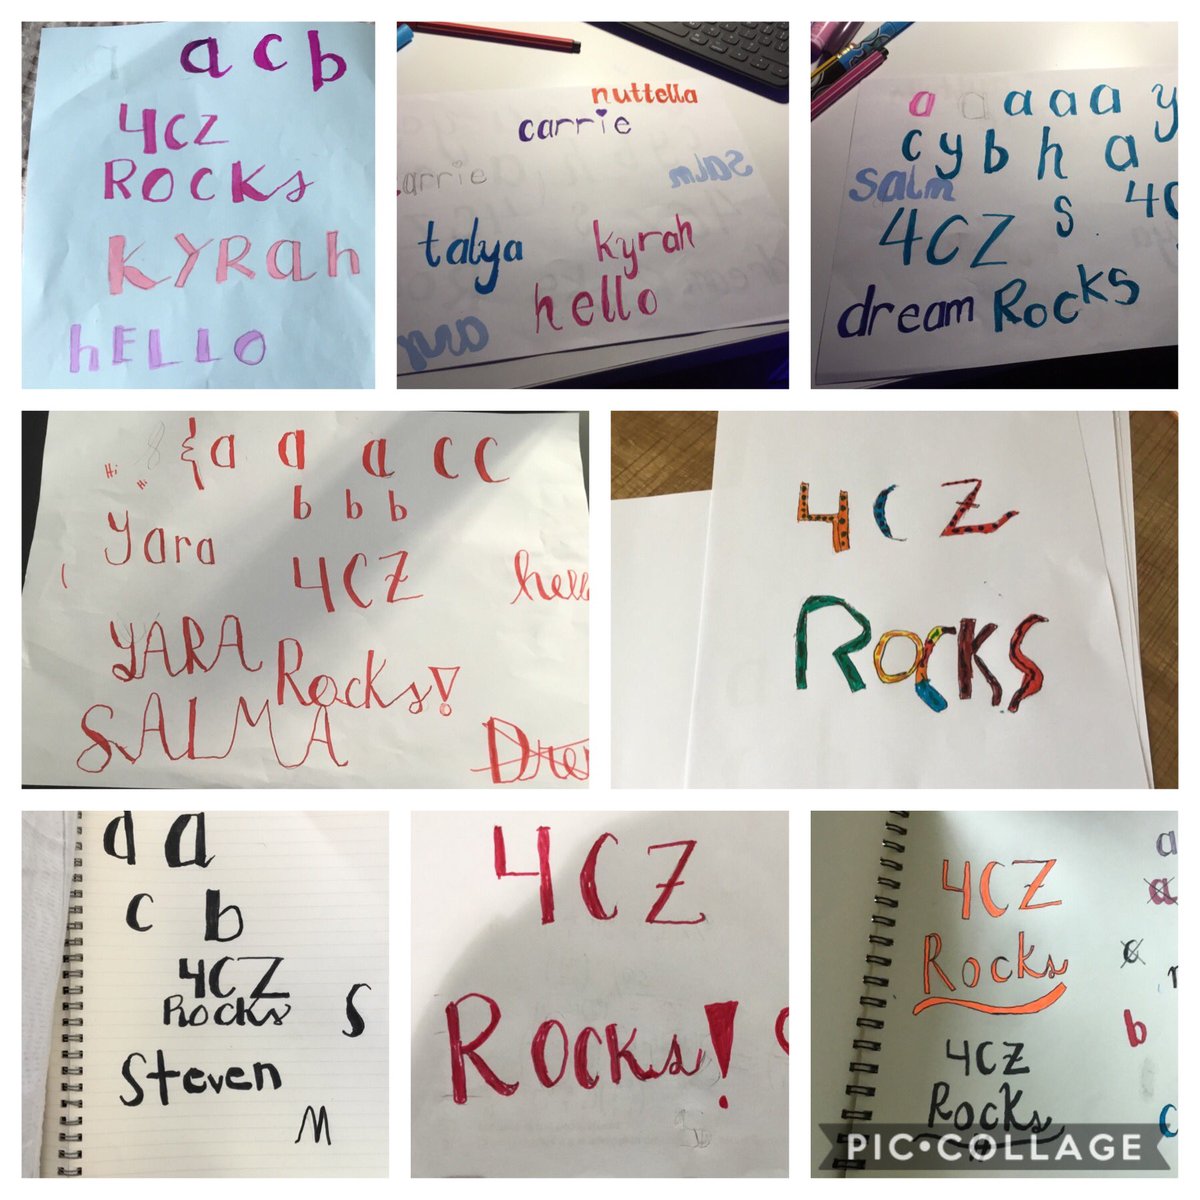 a c b
4CZ
ROCKs
KYRah
hELLO
nuttella
carrie
arrie
salm
talya
kyrah
hello
a a a a a y
c y b h a
salm
4CZ s 4C
dream Rocks
Hi
Hi
& a a a c c
b b b
Yara
4CZ
hello
YARA
Rocks!
SALMA
Dre
4CZ
ROCKS
a a
c b
4CZ
Rocks
S
Steven
M
4CZ
Rocks!
4CZ
Rocks
4CZ
Rocks
a
a
c
b
c
PIC•COLLAGE